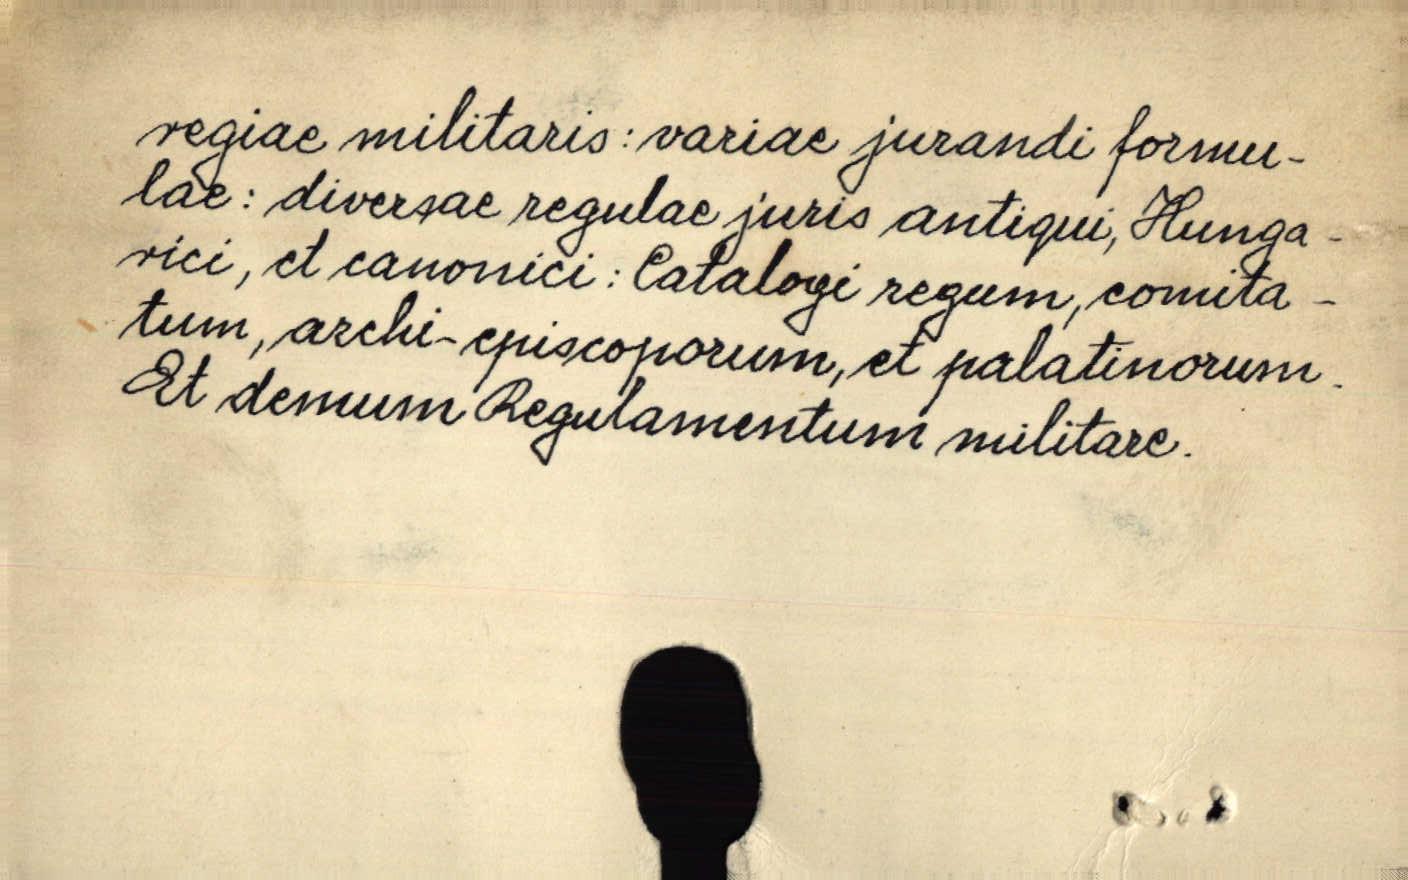 regiae militaris: variae jurandi formu-
lae: diversae regulae juris antiqui, Hunga-
rici, et canonici: Catalogi regum, comita-
tum, archi-episcoporum, et palatinorum.
Et demum Regulamentum militare.